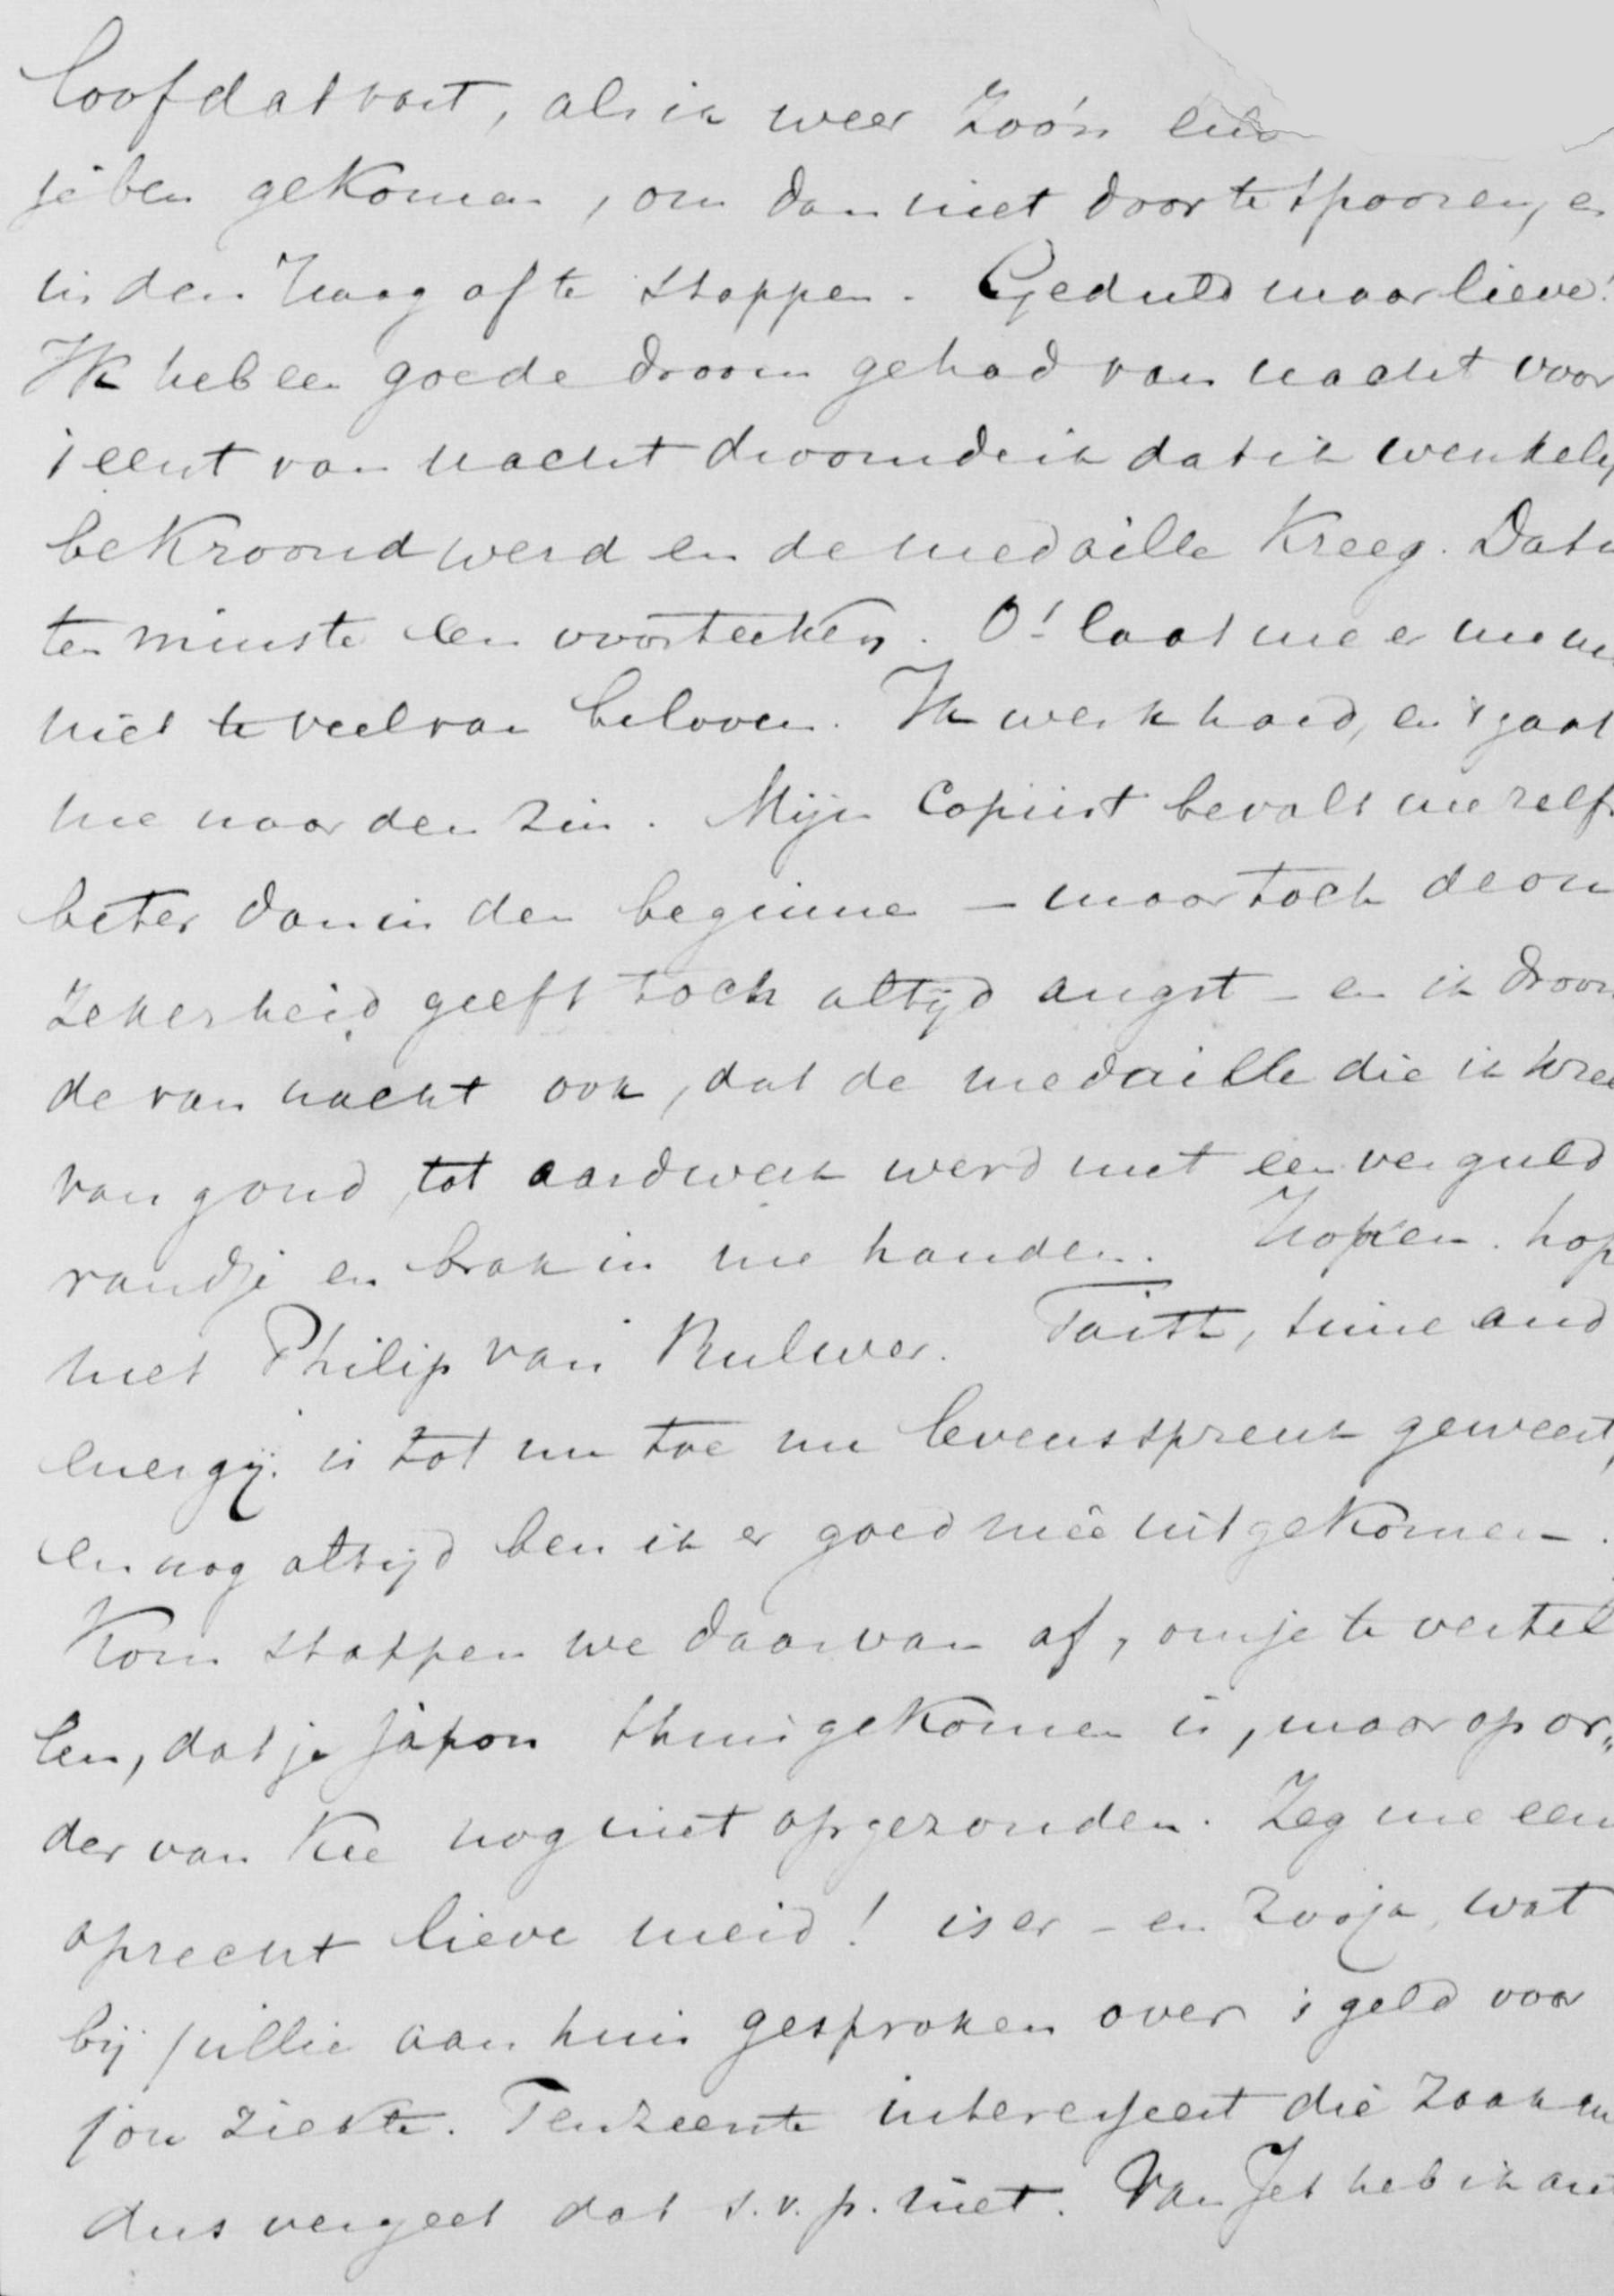 loof dat vast, als ik weer zoo'n eind
je ben gekomen, om dan niet door te spooren, en
in den Haag af te stappen. Geduld maar lieve!
Ik heb een goede droom gehad van nacht voor
't eerst van nacht droomde ik dat ik werkelij
bekroond werd en de medaille kreeg. Dat is
ten minste een voorteeken. O! laat me er me nu
niet te veel van beloven. Ik werk hard, en 't gaat
me naar den zin. Mijn Copiïst bevalt me zelfs
beter dan in den beginne – maar toch de on
zekerheid geeft toch altijd angst – en ik droom
de van nacht ook, dat de medaille die ik kree
van goud, tot aardwerk werd met een verguld
randje en brak in me handen. Hopen. hop
met Philip van Bulwer. Faith, time and
energy. is tot nu toe mn levensspreuk geweest,
en nog altijd ben ik er goed meê uitgekomen.
Kom stappen we daarvan af, om je te vertel
len, dat je japon thuisgekomen is, maar op or„
der van Kee nog niet opgezonden. Zeg me een
oprecht lieve meid! is er – en zoo ja, wat
bij jullie aan huis gesproken over 't geld voor
jou ziekte. Ten zeerste interesseert die zaak me
dus vergeet dat s.v.p. niet. Van Jet heb ik ant